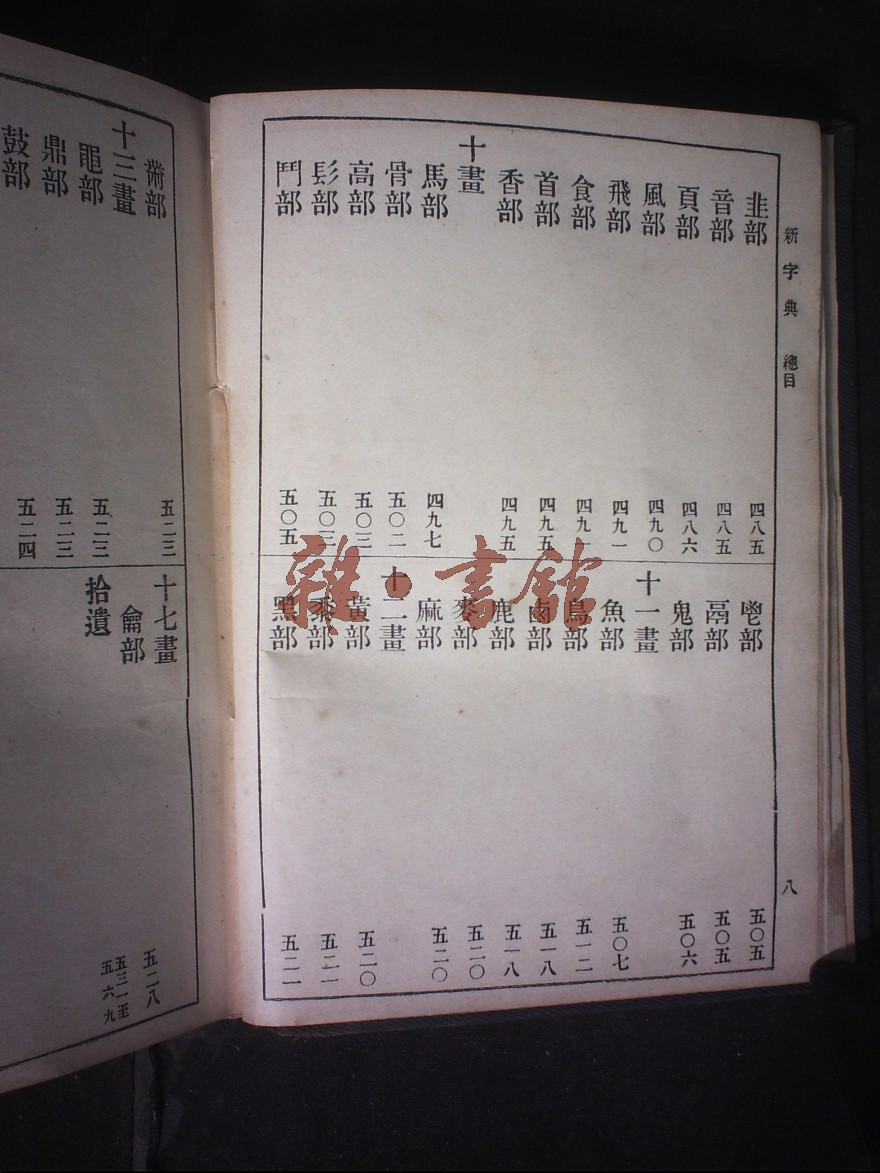 新字典 總目
八
韭部 四八五
音部 四八五
頁部 四八六
風部 四九〇
飛部 四九一
食部 四九一
首部 四九五
香部 四九五
十畫
馬部 四九七
骨部 五〇二
高部 五〇三
髟部 五〇三
鬥部 五〇五
鬯部 五〇五
鬲部 五〇五
鬼部 五〇六
十一畫
魚部 五〇七
鳥部 五一二
鹵部 五一八
鹿部 五一八
麥部 五二〇
麻部 五二〇
十二畫
黃部 五二〇
黍部 五二一
黑部 五二一
黹部 五二三
十三畫
黽部 五二三
鼎部 五二三
鼓部 五二四
十七畫
龠部 五二八
拾遺 五三一至五六九
雜·書館